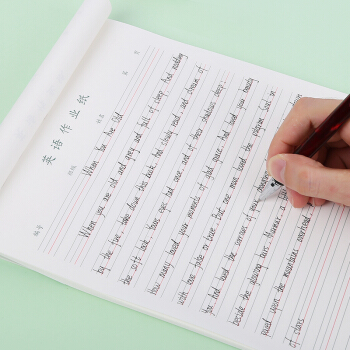 英语作业纸
编号
班级
姓名
When You Are Old
When you are old and grey and full of sleep, And nodding
by the fire, take down this book, And slowly read, and dream of
the soft look, Your eyes had once, and of their shadows deep;
How many loved your moments of glad grace, And loved your beauty
with love false or true, But one man loved the pilgrim Soul in
you, And loved the sorrows of your
beside the glowing bars, Murmur,
paced upon the mountains overhead
of stars.